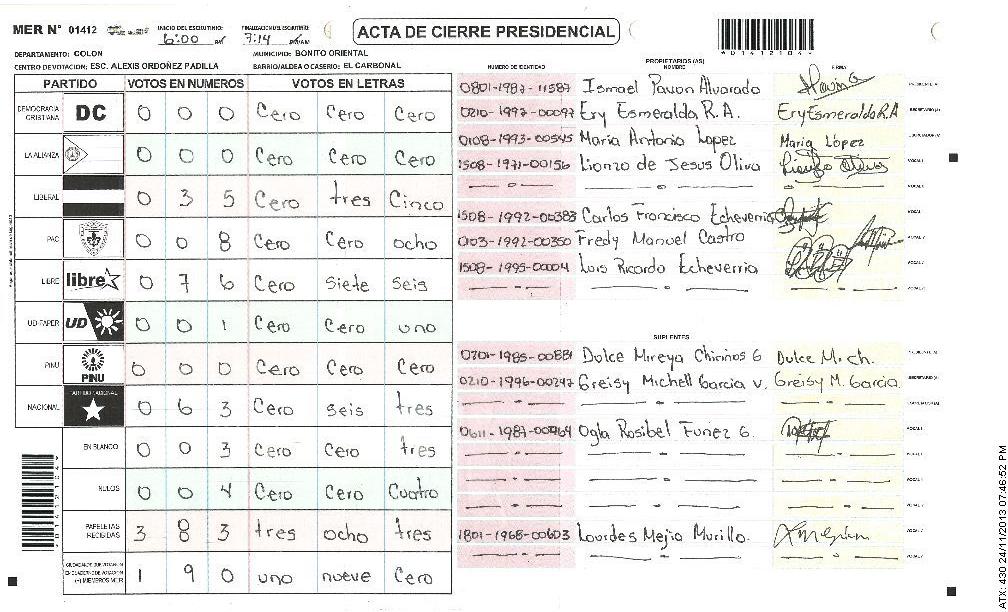 MER N° 01412 INICIO DEL ESCRUTINIO: 6:00 FINALIZACION DEL ESCRUTINIO: 7:14 PM/AM
ACTA DE CIERRE PRESIDENCIAL
*01412104*
DEPARTAMENTO: COLON MUNICIPIO: BONITO ORIENTAL
CENTRO DE VOTACION: ESC. ALEXIS ORDOÑEZ PADILLA BARRIO/ALDEA O CASERIO: EL CARBONAL
PARTIDO VOTOS EN NUMEROS VOTOS EN LETRAS
DEMOCRACIA CRISTIANA DC 0 0 0 Cero Cero Cero
LA ALIANZA 0 0 0 Cero Cero Cero
LIBERAL 0 3 5 Cero tres Cinco
PAC 0 0 8 Cero Cero ocho
LIBRE libre 0 7 6 Cero siete seis
UD-FAPER UD 0 0 1 Cero Cero uno
PINU PINU 0 0 0 Cero Cero Cero
NACIONAL PARTIDO NACIONAL 0 6 3 Cero seis tres
EN BLANCO 0 0 3 Cero Cero tres
NULOS 0 0 4 Cero Cero Cuatro
PAPELETAS RECIBIDAS 3 8 3 tres ocho tres
CIUDADANOS QUE VOTARON EN CUADERNO DE VOTACION (+) MIEMBROS MER 1 9 0 uno nueve Cero
PROPIETARIOS (AS)
NUMERO DE IDENTIDAD NOMBRE FIRMA
0801-1987-11587 Ismael Pavon Alvarado PRESIDENTE (A)
0210-1997-00097 Ery Esmeralda R.A. Ery Esmeralda R.A SECRETARIO (A)
0108-1993-00545 Maria Antonia Lopez Maria López ESCRUTADOR (A)
1508-1971-00156 Lionzo de Jesus Oliva VOCAL I
1508-1992-00383 Carlos Francisco Echeverria
Fredy Manuel Castro
1508-1995-00004 Luis Ricardo Echeverria
SUPLENTES
0201-1985-00881 Dulce Mireya Chirinos G Dulce M. ch. PRESIDENTE (A)
0210-1996-00247 Greisy Michell Garcia v. Greisy M. Garcia SECRETARIO (A)
Ogla Rosibel Funez G.
1801-1968-00603 Lourdes Mejia Murillo.
ATX: 430 24/11/2013 07:46:52 PM